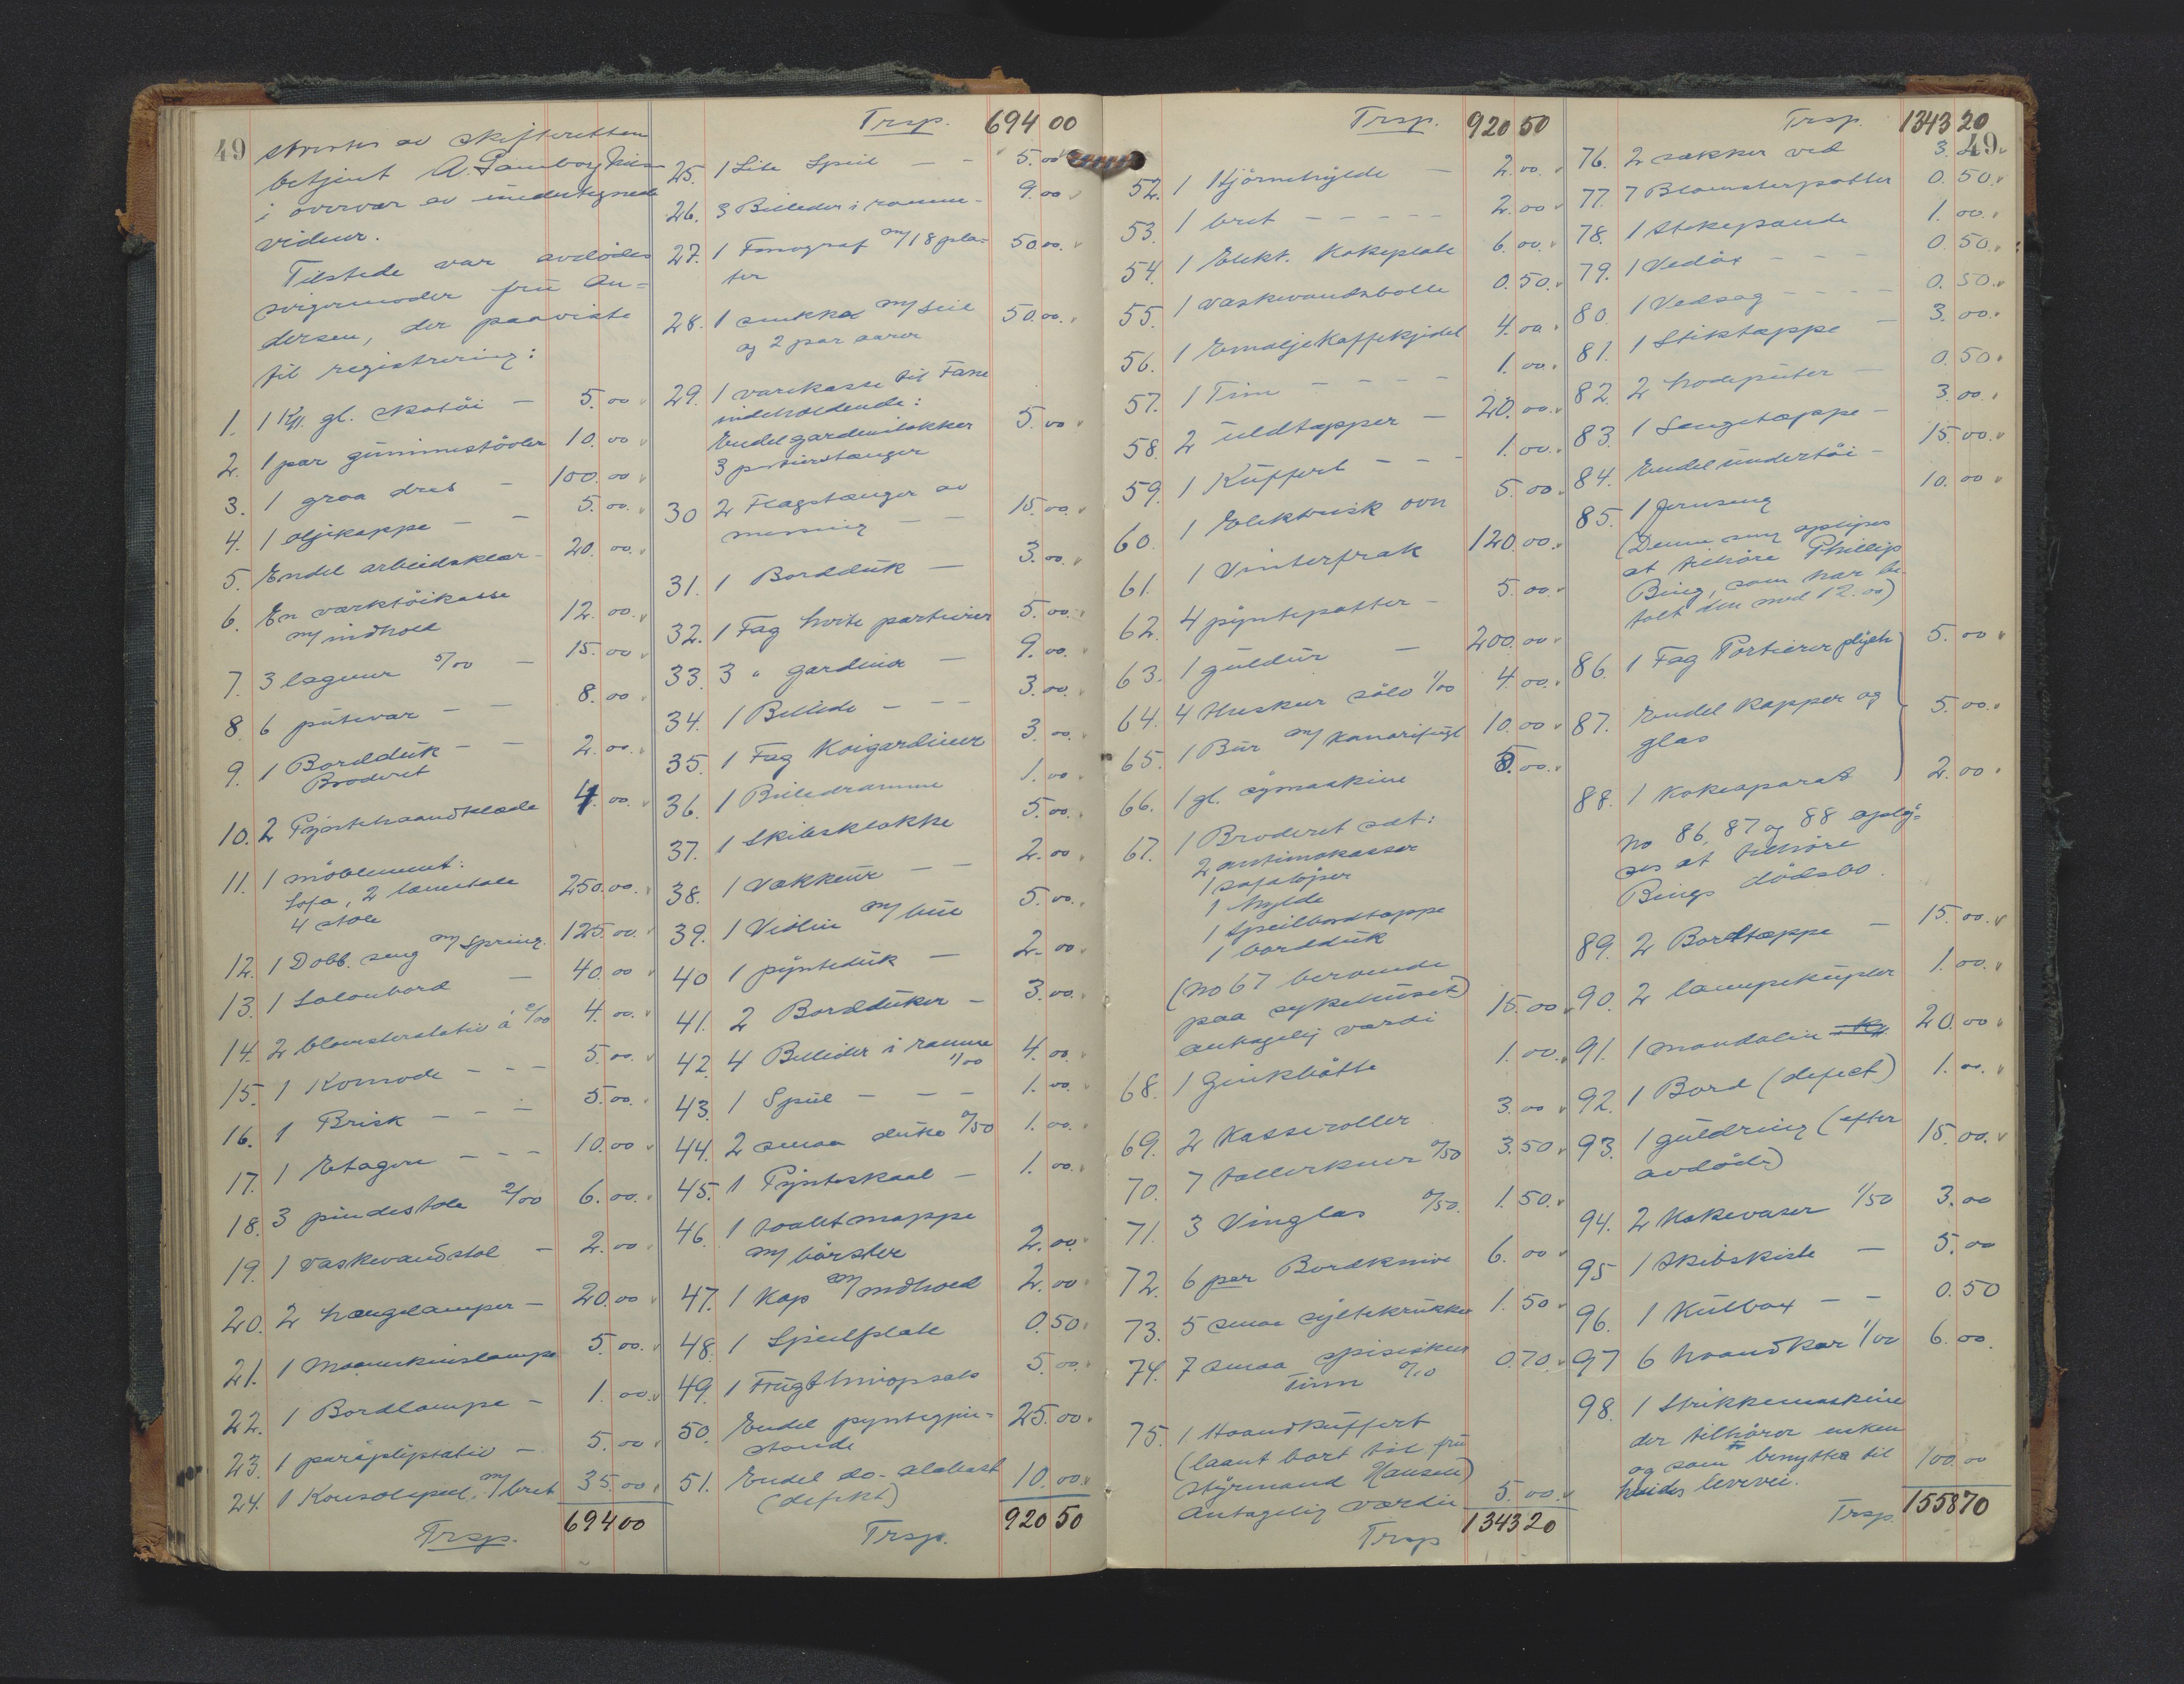 49
av Skifteretten
betjent A.
i overvær av undertegnede
vidner.
Tilstede var avdödes
svigermoder fru An=
dersen, der paaviste
til registrering:
1. 1 Kff. gl. skotöi — 5.00
2. 1 par gummistövler 10.00
3. 1 graa dres — 100.00
4. 1 oljekappe — — 5.00
5. Endel arbeidsklær — 20.00
6. En værktöikasse
m/ indhold 12.00
7. 3 lagener 5/00 — 15.00
8. 6 putevar — — 8.00
9. 1 Borddük — — 2.00
Broderet
10. 2 Pyntehaandklæde 4.00
11. 1 möblement:
Sofa, 2 lænestole
4 stole 250.00
12. 1 Dobb. seng m/ spring. 125.00
13. 1 Salonbord — 40.00
14. 2 blomsterstativ á 2/00 4.00
15. 1 Komode — — — 5.00
16. 1 Brisk — — — 5.00
17. 1 Etagere — — — 10.00
18. 3 pindestole 2/00 6.00
19. 1 Vaskevandstol — 2.00
20. 2 hængelamper — 20.00
21. 1 Maaneskinslampe 5.00
22. 1 Bordlampe — 1.00
23. 1 paraplystativ — 5.00
24. 1 Konsolspeil m/ bret 35.00
Trsp. 694 00
Trsp. 694 00
25. 1 Lite Speil — — 5.00
26. 3 Billeder i ramme — 9.00
27. 1 Fonograf m/ 18 pla=
ter 50.00
28. 1 snekke m/ seil
og 2 par aarer 50.00
29. 1 varekasse til Fane
indeholdende:
Endel gardinstokker 5.00
3 portierstænger
30 2 Flagstænger av
messing — — 15.00
31. 1 Borddük — 3.00
32. 1 Fag hvite portierer 5.00
33. 3 " gardiner — 9.00
34. 1 Billede — — — 3.00
35. 1 Fag Koigardiner 3.00
36. 1 Billedramme 1.00
37. 1 Skibsklokke 5.00
38. 1 Vækkeur — — 2.00
39. 1 Violin m/ bue 5.00
40 1 pyntedük — 2.00
41. 2 Borddüker — 3.00
42. 4 Billeder i ramme
1/00 4.00
43. 1 Speil — — — 1.00
44. 2 smaa duke 0/50 1.00
45. 1 Pynteskaal — 1.00
46. 1 toaletmappe
m/ börster 2.00
47. 1 Kop m/ indhold 2.00
48. 1 Speilplate 0.50
49. 1 Frugt 5.00
50. Endel pyntegjen=
stande 25.00
51. Endel do. alabast
(defekt) 10.00
Trsp. 920 50
49
Trsp. 920 50
52. 1 Hjörnehylde — 2.00
53. 1 bret — — — — — 2.00
54. 1 Elekt. Kokeplate 6.00
55. 1 vaskevandsbolle 0.50
56. 1 Emalje Kaffekjedel 4.00
57. 1 Tine — — — — 1.00
58. 2 uldtæpper — 20.00
59. 1 Kuffert — — — 1.00
60. 1 Elektrisk ovn 5.00
61. 1 Vinterfrak 120.00
62. 4 pyntepotter — 5.00
63. 1 guldur — 200.00
64. 4 theskeer sölv 1/00 4.00
65. 1 Bur m/ Kanarifugl 10.00
66. 1 gl. symaskine 5.00
67. 1 Broderet sæt:
2 antimakasser
1 sofalöper
1 hylde
1 speilbordtæppe
1 borddük
(no 67 beroende
paa sykehuset)
antagelig værdi 15.00
68. 1 Zinkbötte 1.00
69. 2 Kasseroller 3.00
70. 7 tallerkener 0/50 3.50
71. 3 Vinglas 0/50. 1.50
72. 6 par Bordknive 6.00
73. 5 smaa syltekrukker 1.50
74. 7 smaa spiseskeer
Tinn 0/10 0.70
75. 1 Haandkuffert
(laant bort til fru
styrmand Hansen)
Antagelig værdi 5.00
Trsp 1343 20
Trsp. 1343 20
76. 2 sækker ved 3.00
77. 7 Blomsterpotter 0.50
78. 1 Stekepande 1.00
79. 1 Vedöx — — — 0.50
80 1 Vedsag — — — — 0.50
81. 1 Stiktæppe — 3.00
82. 2 hodeputer — 0.50
83. 1 Sengetæppe — 3.00
84. Endel undertöi — 15.00
85. 1 Jernseng 10.00
(Denne seng oplyses
at tilhöre Phillip
Bing, som har be
talt den med 12.00)
86. 1 Fag Portierer plysch 5.00
87. Endel Kopper og
glas 5.00
88. 1 Kokeaparat 2.00
No 86, 87 og 88 oply=
ses at tilhöre
Bings dödsbo.
89. 2 Bordtæppe — 15.00
90. 2 lampekupler 1.00
91. 1 mandolin 20.00
92. 1 Bord (defect) 1.00
93. 1 guldring (efter
avdöde) 15.00
94. 2 Kakevaser 1/50 3.00
95 1 Skibskiste — 5.00
96. 1 Kulbox — — 0.50
97 6 haandkær 1/00 6.00
98. 1 Strikkemaskine
der tilhörer enken
og som benyttes til
hendes levevei. 100.00
Trsp. 1558 70